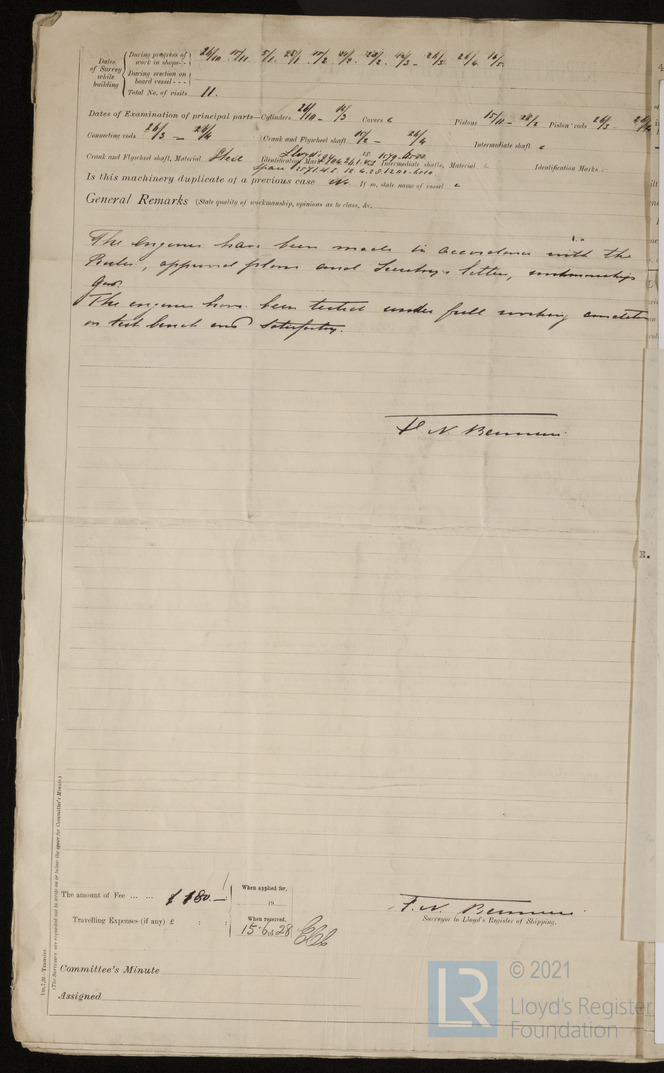 Dates of Survey while building
During progress of work in shops - - 26/10 15/11 5/1 25/1 15/2 24/2 28/2 14/3 - 26/3 26/4 16/5
During erection on board vessel - - -
Total No. of visits 11.
Dates of Examination of principal parts—Cylinders 26/10 - 14/3 Covers Pistons 15/11 - 28/2 Piston rods 26/3 -
Connecting rods 26/3 - 26/4 Crank and Flywheel shaft 15/2 - 26/4 Intermediate shaft
Crank and Flywheel shaft, Material Steel Identification Mark Lloyd's Intermediate shafts, Material Identification Marks
Is this machinery duplicate of a previous case No If so, state name of vessel
General Remarks (State quality of workmanship, opinions as to class, &c.
The engines have been made in accordance with the
Rules, approved plans and Secretary's letter, workmanship
good.
The engines have been tested under full working condition
on test bench and satisfactory.
F. N.
The amount of Fee ... ... £ 180.—
When applied for,
19
Travelling Expenses (if any) £ : :
When received,
15.6.1928
F. N.
Surveyor to Lloyd's Register of Shipping.
Committee's Minute
Assigned
(The Surveyors are requested not to write on or below the space for Committee's Minute.)
© 2021
LR
Lloyd's Register
Foundation
E.